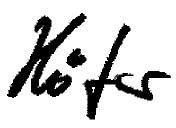 Höfer